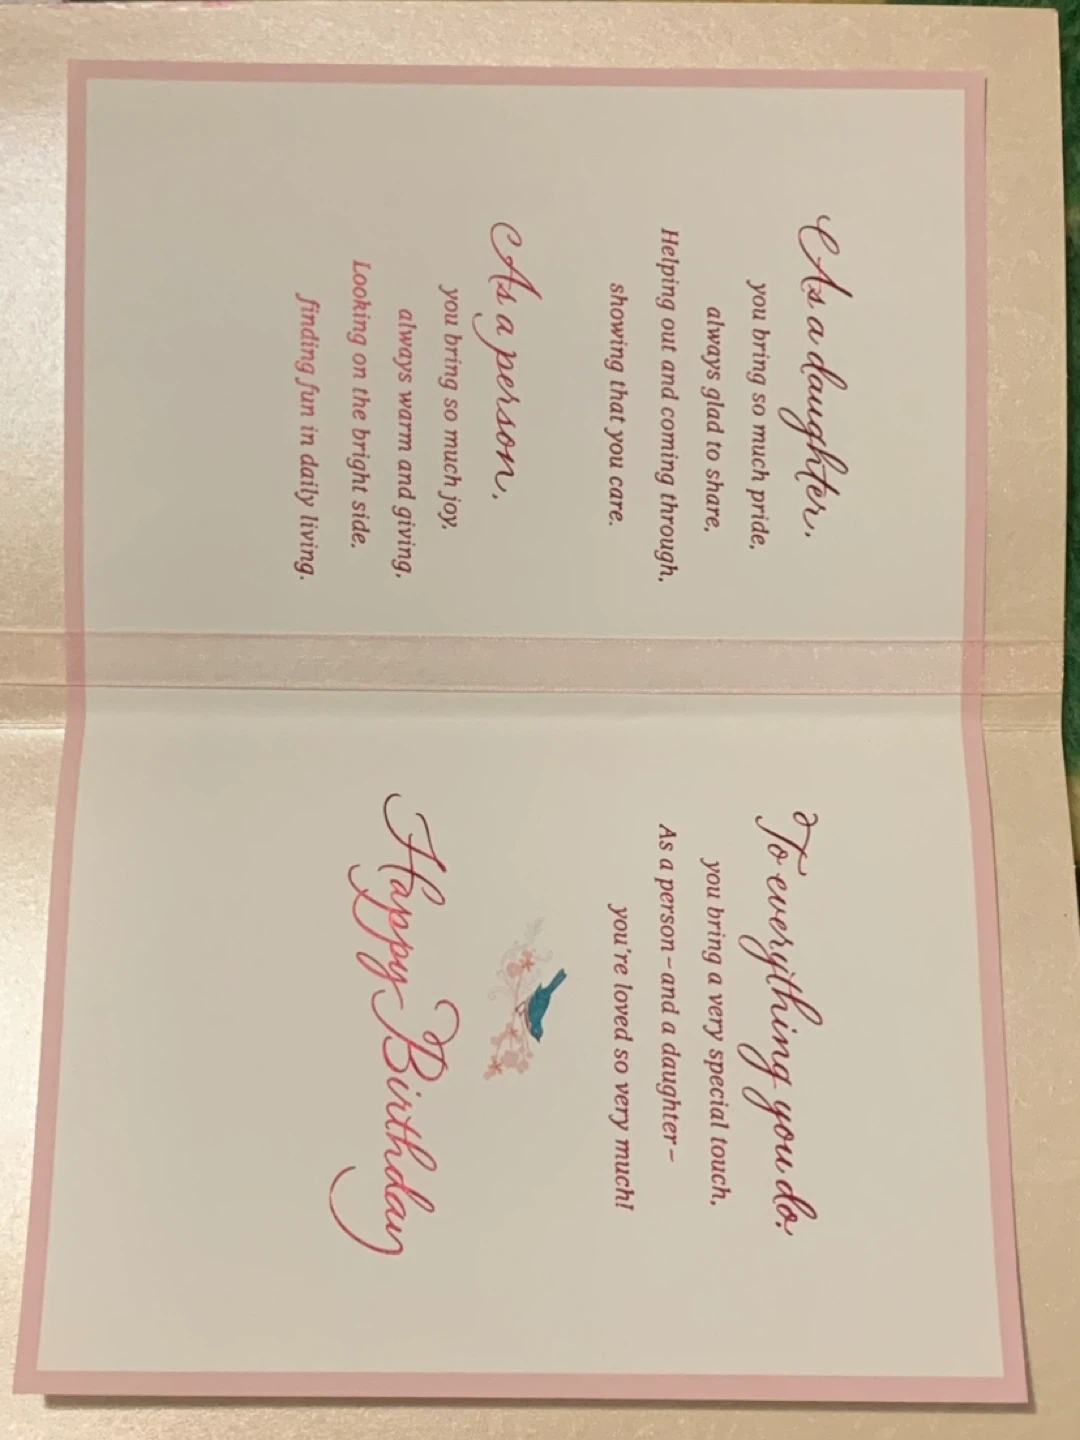 As a daughter,
you bring so much pride,
always glad to share,
Helping out and coming through,
showing that you care.
As a person,
you bring so much joy,
always warm and giving,
Looking on the bright side,
finding fun in daily living.
To everything you do,
you bring a very special touch,
As a person – and a daughter –
you're loved so very much!
Happy Birthday